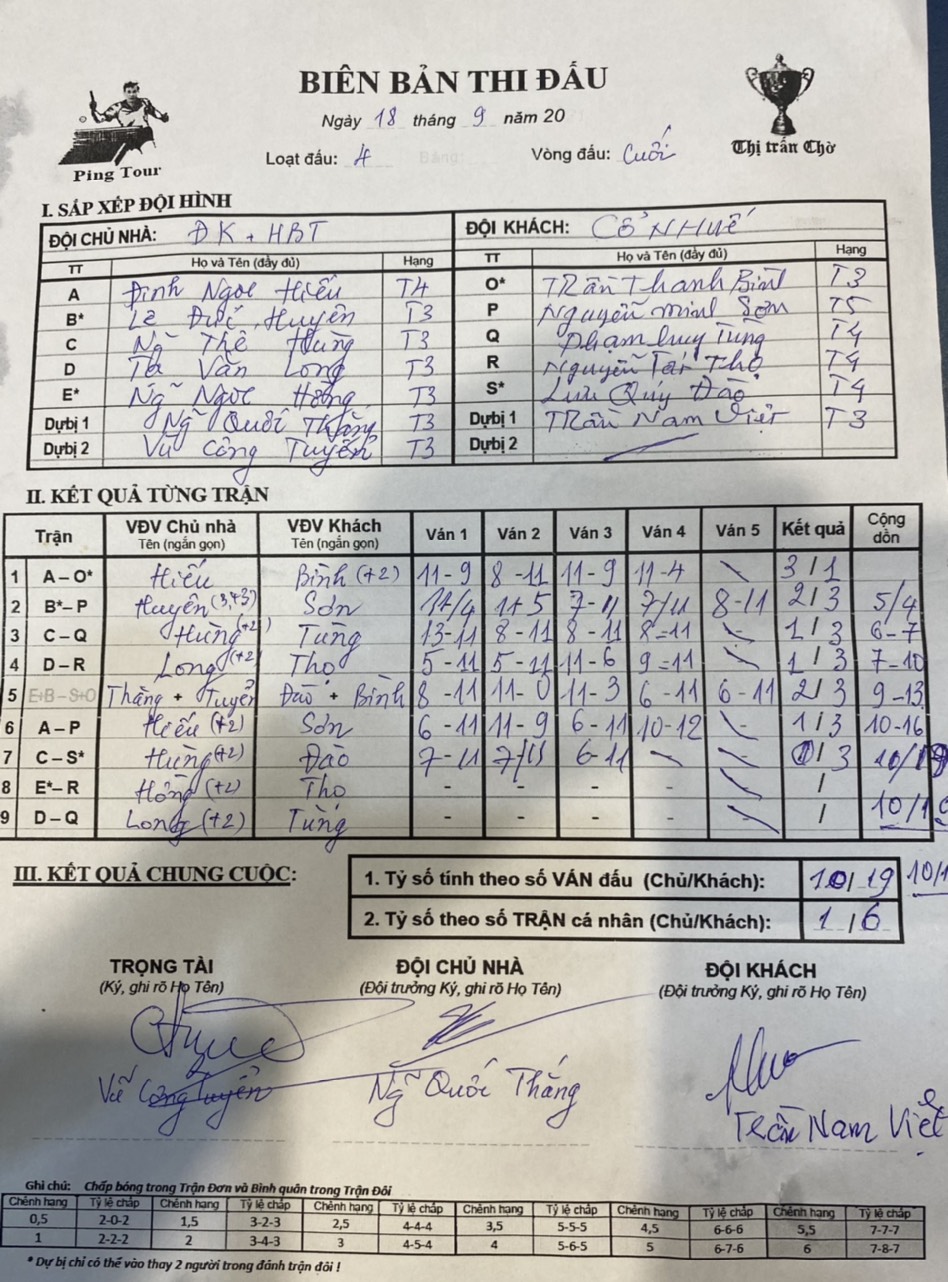 BIÊN BẢN THI ĐẤU
Ngày 18 tháng 9 năm 20
Loạt đấu: 4 Bảng: Vòng đấu: Cuối
Ping Tour
Thị trấn Chờ
I. SẮP XẾP ĐỘI HÌNH
ĐỘI CHỦ NHÀ: ĐK + HBT ĐỘI KHÁCH: CỔ NHUẾ
TT Họ và Tên (đầy đủ) Hạng TT Họ và Tên (đầy đủ) Hạng
A Đinh Ngọc Hiếu T4 O* TRần Thanh Bình T3
B* Lê Đức Huyên T3 P Nguyễn minh Sơn T5
C Ng~ Thế Hùng T3 Q Phạm Huy Tùng T4
D Tạ Văn Long T3 R Nguyễn Tất Thọ T4
E* Ng~ Ngọc Hồng T3 S* Lưu Quý Đào T4
Dựbị 1 Ng~ Quốc Thắng T3 Dựbị 1 TRần Nam Việt T3
Dựbị 2 Vũ Công Tuyển T3 Dựbị 2
II. KẾT QUẢ TỪNG TRẬN
Trận VĐV Chủ nhà VĐV Khách Ván 1 Ván 2 Ván 3 Ván 4 Ván 5 Kết quả Cộng dồn
Tên (ngắn gọn) Tên (ngắn gọn)
1 A – O* Hiếu Bình (+2) 11-9 8-11 11-9 11-4 \ 3/1
2 B*– P Huyên Sơn 11-5 7-11 7/11 8-11 2/3 5/4
3 C – Q Hùng (+2) Tùng 13-11 8-11 8-11 8-11 \ 1/3 6-7
4 D – R Long (+2) Thọ 5-11 5-11 11-6 9-11 \ 1/3 7-10
5 E+B – S+O Thắng + Tuyển Đào + Bình 8-11 11-0 11-3 6-11 6-11 2/3 9-13
6 A – P Hiếu (+2) Sơn 6-11 11-9 6-11 10-12 \ 1/3 10-16
7 C – S* Hùng (+2) Đào 7-11 7/11 6-11 \ \ 0/3 10/19
8 E*– R Hồng (+2) Thọ - - - - \ /
9 D – Q Long (+2) Tùng - - - - \ / 10/19
III. KẾT QUẢ CHUNG CUỘC:
1. Tỷ số tính theo số VÁN đấu (Chủ/Khách): 10/19
2. Tỷ số theo số TRẬN cá nhân (Chủ/Khách): 1/6
TRỌNG TÀI ĐỘI CHỦ NHÀ ĐỘI KHÁCH
(Ký, ghi rõ Họ Tên) (Đội trưởng Ký, ghi rõ Họ Tên) (Đội trưởng Ký, ghi rõ Họ Tên)
Vũ Công Tuyển Ng~ Quốc Thắng Trần Nam Việt
Ghi chú: Chấp bóng trong Trận Đơn và Bình quân trong Trận Đôi
Chênh hạng Tỷ lệ chấp Chênh hạng Tỷ lệ chấp Chênh hạng Tỷ lệ chấp Chênh hạng Tỷ lệ chấp Chênh hạng Tỷ lệ chấp Chênh hạng Tỷ lệ chấp
0,5 2-0-2 1,5 3-2-3 2,5 4-4-4 3,5 5-5-5 4,5 6-6-6 5,5 7-7-7
1 2-2-2 2 3-4-3 3 4-5-4 4 5-6-5 5 6-7-6 6 7-8-7
* Dự bị chỉ có thể vào thay 2 người trong đánh trận đôi !